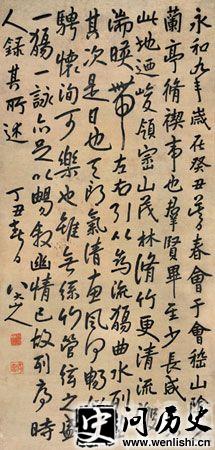 永和九年歲在癸丑暮春會于會稽山陰
蘭亭脩禊事也羣賢畢至少長咸
此地迺峻領崇山茂林脩竹更清流
湍暎帶左右引以為流觴曲水列
其次是日也天朗氣清惠風和暢
騁懷洵可樂也雖無絲竹管弦之盛
一觴一詠亦足以暢敘幽情已故列序時
人錄其所述
丁丑春日
八大山人
中问历史
www.wenlishi.cn